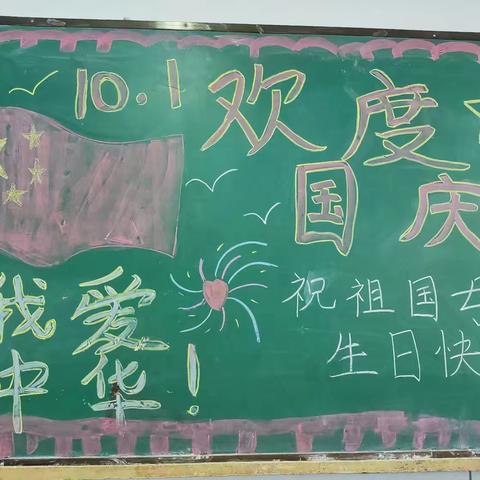 10.1
欢度
国庆
我爱
中华！
祝祖国
生日快